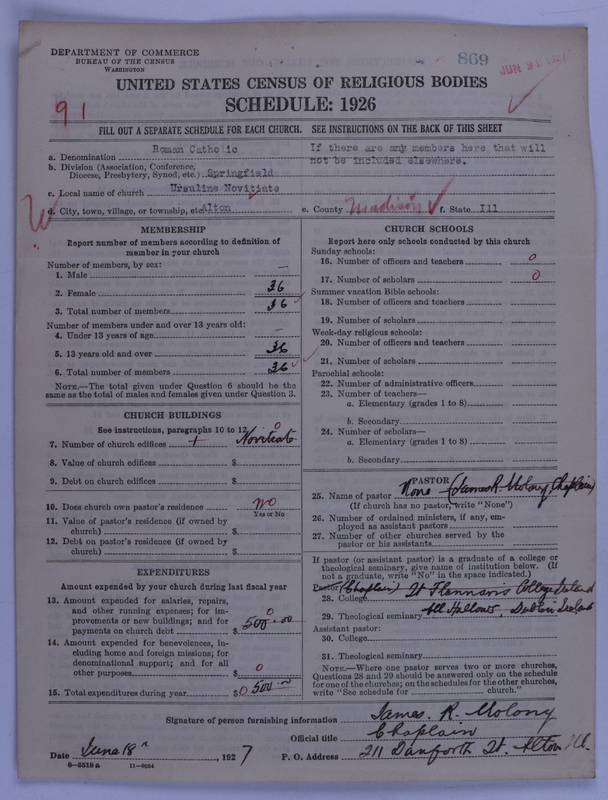 DEPARTMENT OF COMMERCE
BUREAU OF THE CENSUS
WASHINGTON
869
JUN 22 1927
91
UNITED STATES CENSUS OF RELIGIOUS BODIES
SCHEDULE: 1926
FILL OUT A SEPARATE SCHEDULE FOR EACH CHURCH. SEE INSTRUCTIONS ON THE BACK OF THIS SHEET
a. Denomination Roman Catholic
If there are any members here that will
not be included elsewhere.
b. Division (Association, Conference,
Diocese, Presbytery, Synod, etc.) Springfield
c. Local name of church Ursuline Novitiate
d. City, town, village, or township, etc. Alton e. County Madison f. State Ill
MEMBERSHIP
Report number of members according to definition of
member in your church
Number of members, by sex:
1. Male —
2. Female 36
3. Total number of members 36
Number of members under and over 13 years old:
4. Under 13 years of age —
5. 13 years old and over 36
6. Total number of members 36
NOTE.—The total given under Question 6 should be the
same as the total of males and females given under Question 3.
CHURCH BUILDINGS
See instructions, paragraphs 10 to 12
0
7. Number of church edifices 1 Novitiate
8. Value of church edifices $
9. Debt on church edifices $
10. Does church own pastor's residence no
Yes or No
11. Value of pastor's residence (if owned by
church) $
12. Debt on pastor's residence (if owned by
church) $
EXPENDITURES
Amount expended by your church during last fiscal year
13. Amount expended for salaries, repairs,
and other running expenses; for im-
provements or new buildings; and for
payments on church debt $ 500.00
0
14. Amount expended for benevolences, in-
cluding home and foreign missions; for
denominational support; and for all
other purposes $ 0
15. Total expenditures during year $ 0 500
CHURCH SCHOOLS
Report here only schools conducted by this church
Sunday schools:
16. Number of officers and teachers 0
17. Number of scholars 0
Summer vacation Bible schools:
18. Number of officers and teachers
19. Number of scholars
Week-day religious schools:
20. Number of officers and teachers
21. Number of scholars
Parochial schools:
22. Number of administrative officers
23. Number of teachers—
a. Elementary (grades 1 to 8)
b. Secondary
24. Number of scholars—
a. Elementary (grades 1 to 8)
b. Secondary
PASTOR
25. Name of pastor None (James R. Molony Chaplain)
(If church has no pastor, write "None")
26. Number of ordained ministers, if any, em-
ployed as assistant pastors
27. Number of other churches served by the
pastor or his assistants
If pastor (or assistant pastor) is a graduate of a college or
theological seminary, give name of institution below. (If
not a graduate, write "No" in the space indicated.)
Pastor: (Chaplain)
28. College St Flannan's College Ireland
29. Theological seminary All Hallows, Dublin Ireland
Assistant pastor:
30. College
31. Theological seminary
NOTE.—Where one pastor serves two or more churches,
Questions 28 and 29 should be answered only on the schedule
for one of the churches; on the schedules for the other churches,
write "See schedule for church."
Signature of person furnishing information James. R. Molony
Official title Chaplain
Date June 18th, 1927 P. O. Address 211 Danforth St. Alton Ill.
8—5518a 11—9054